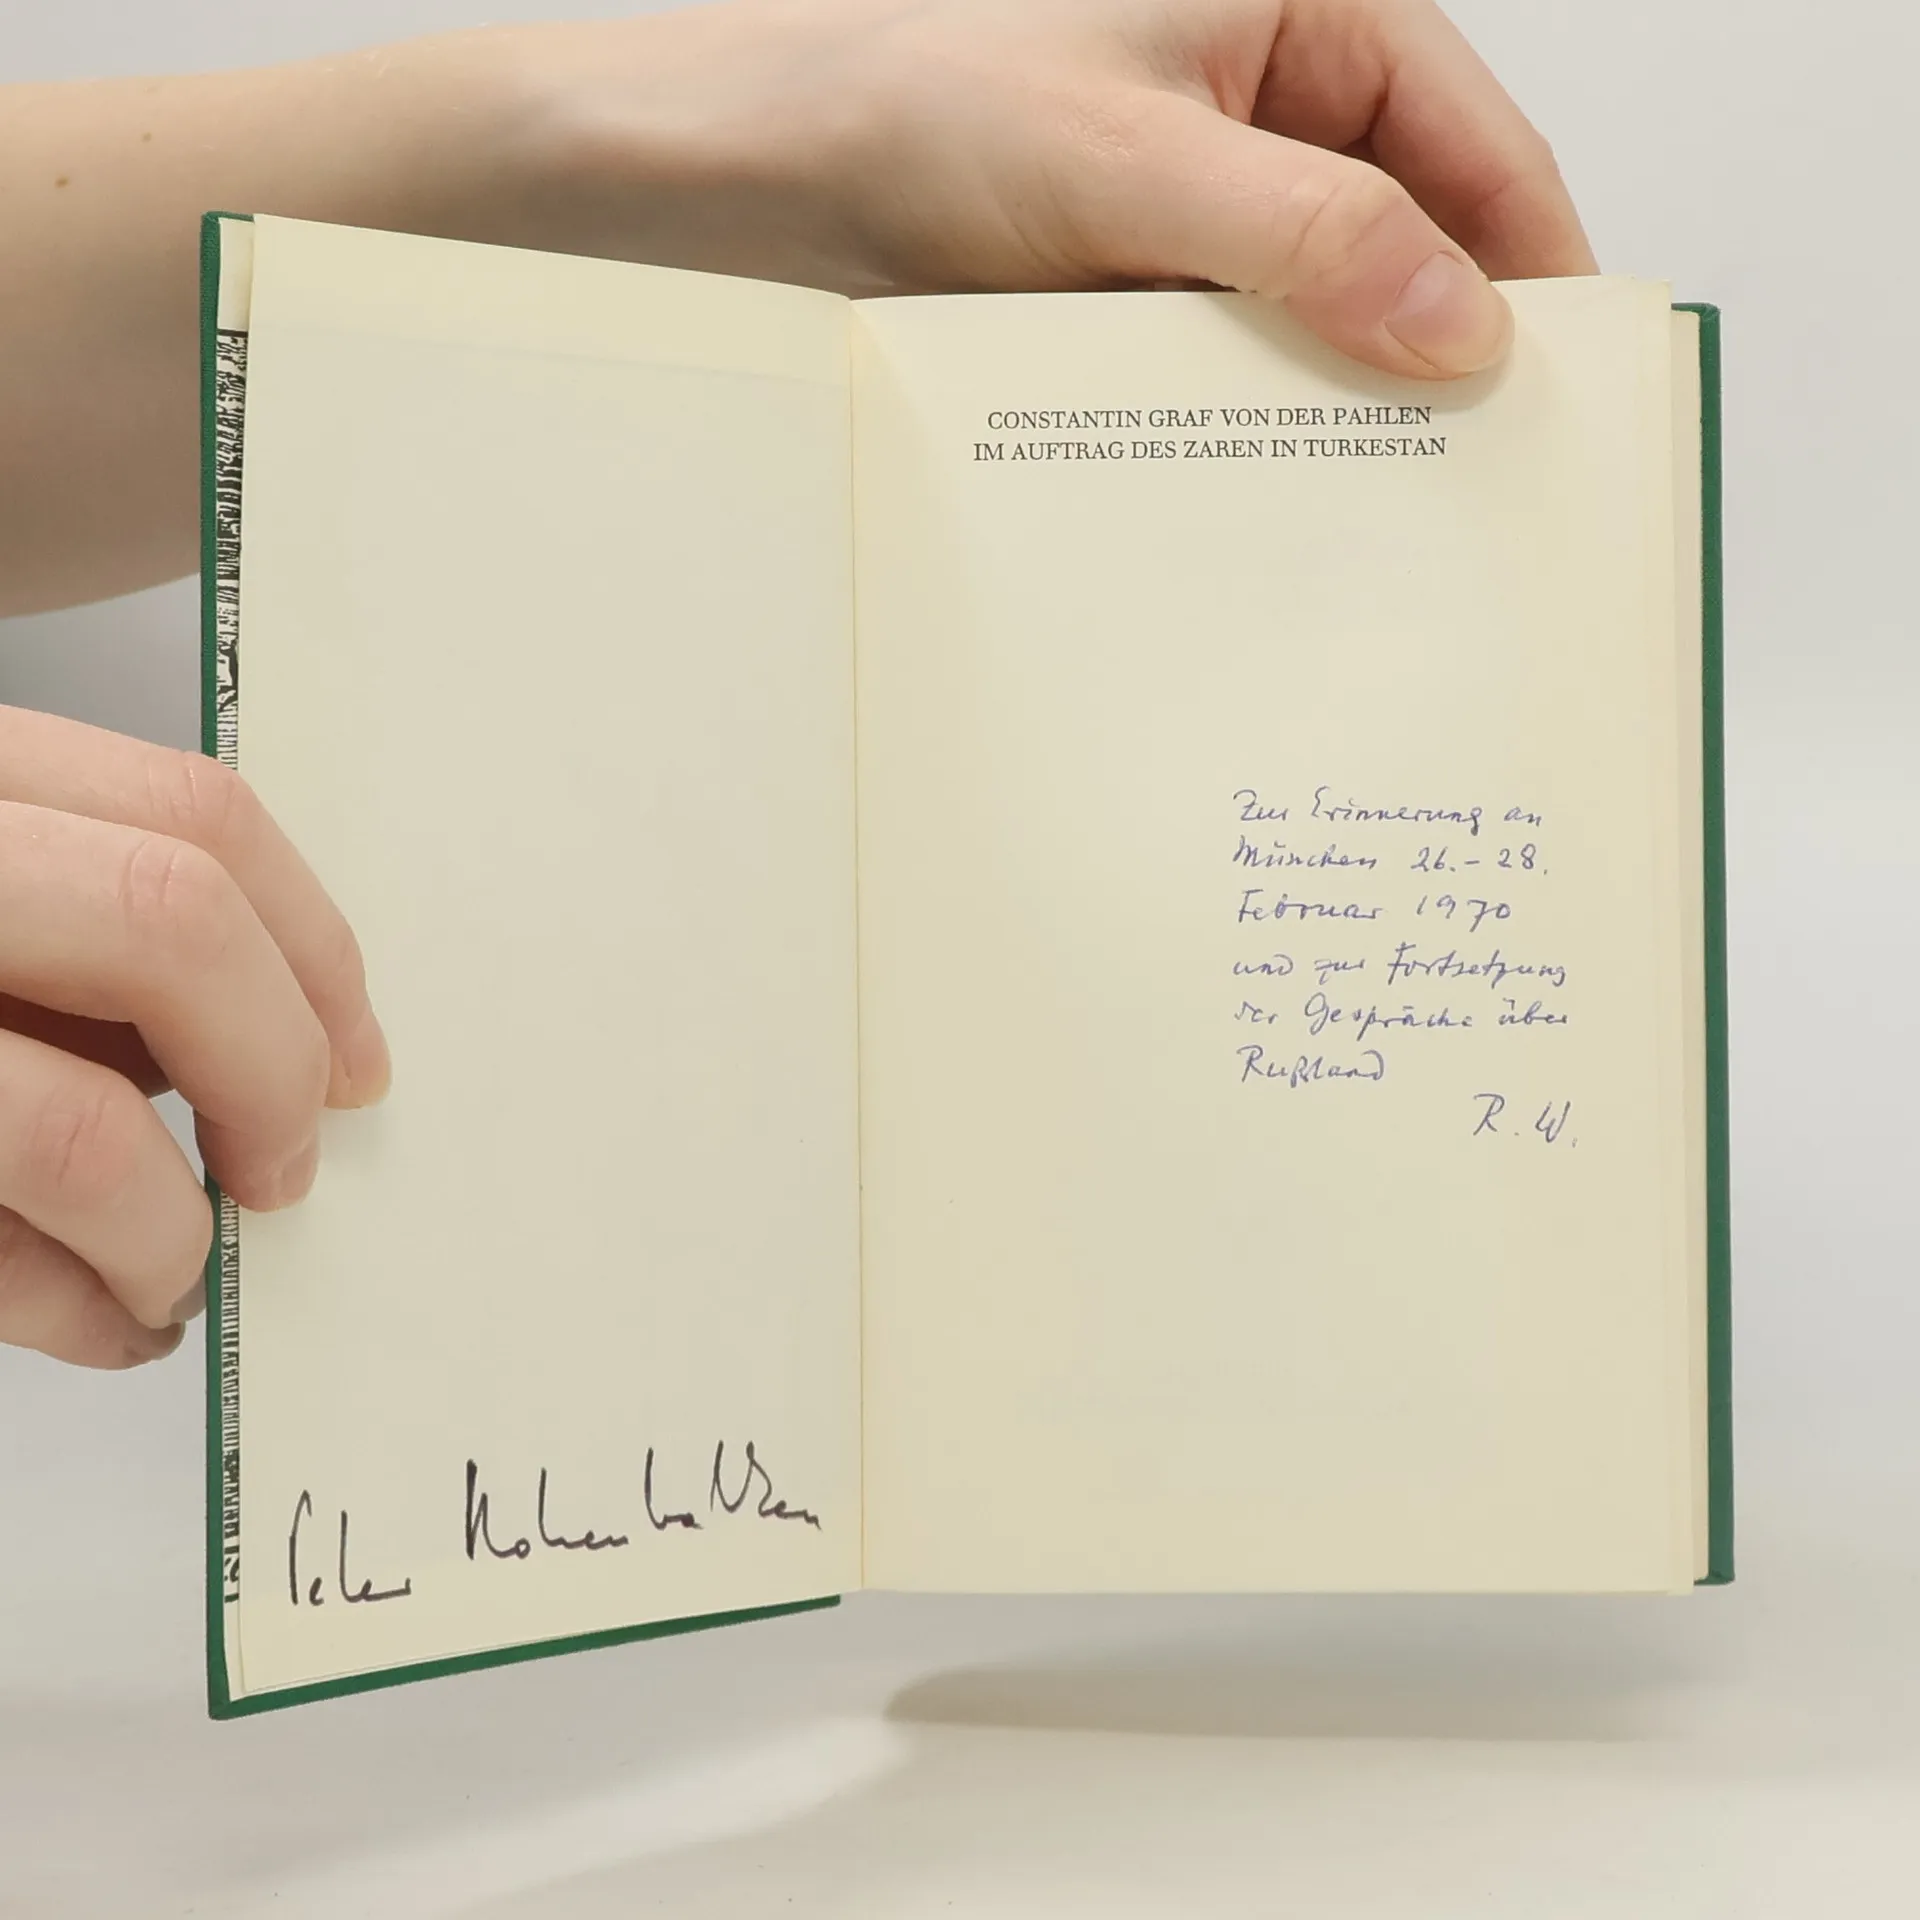 Peter Hohenbalken
CONSTANTIN GRAF VON DER PAHLEN
IM AUFTRAG DES ZAREN IN TURKESTAN
Zur Erinnerung an
München 26.–28.
Februar 1970
und zur Fortsetzung
der Gespräche über
Rußland
R. W.